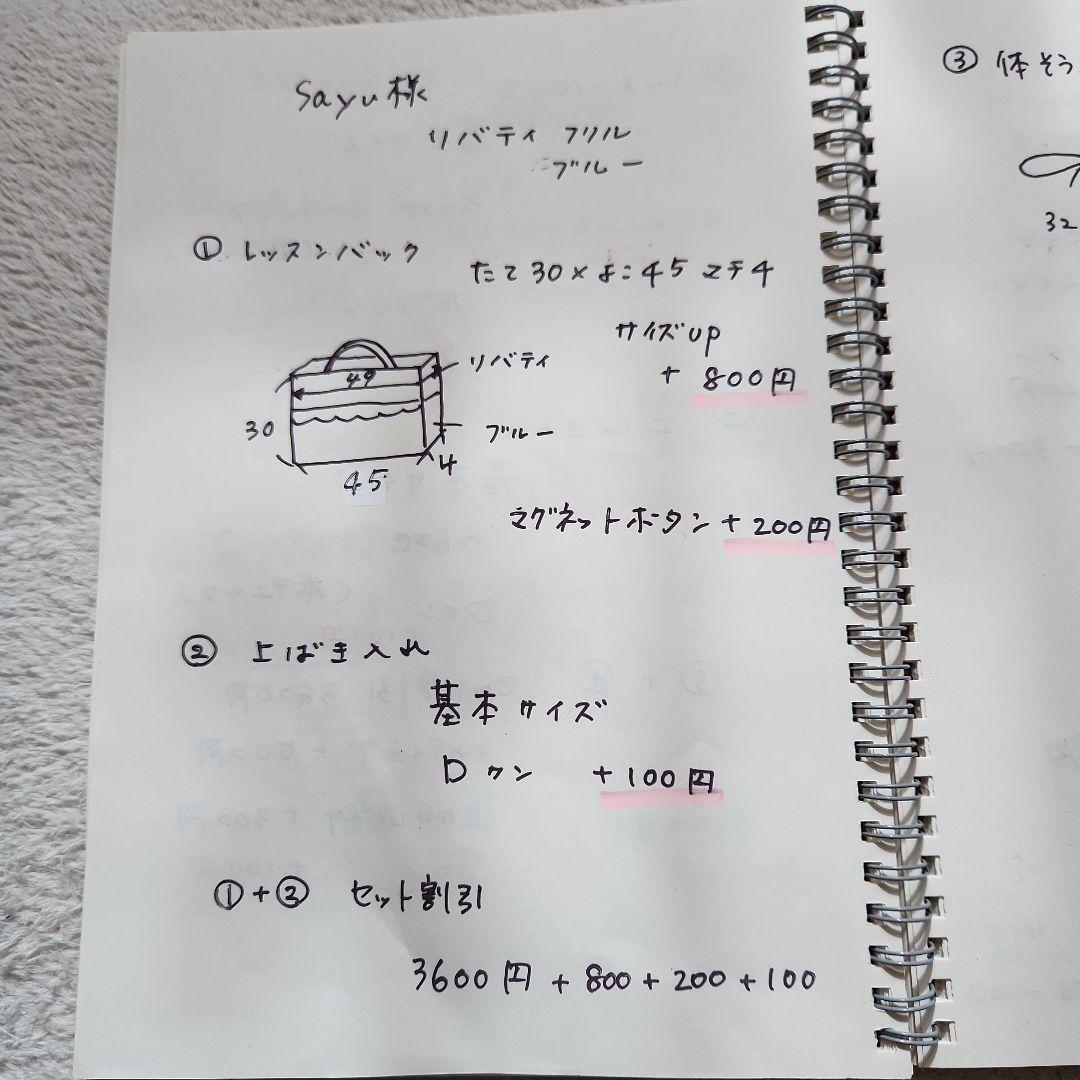 Sayu様
リバティ フリル
ブルー
① レッスンバック
たて30×よこ45 マチ4
サイズup
+ 800円
49
リバティ
30
ブルー
4
45
マグネットボタン +200円
② 上ばき入れ
基本サイズ
Dカン +100円
①+② セット割引
3600円+800+200+100
③ 体そう
32